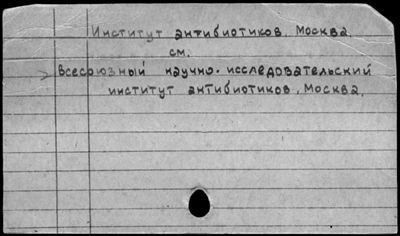 Институт антибиотиков. Москва.
см.
Всесоюзный научно-исследовательский
институт антибиотиков. Москва.